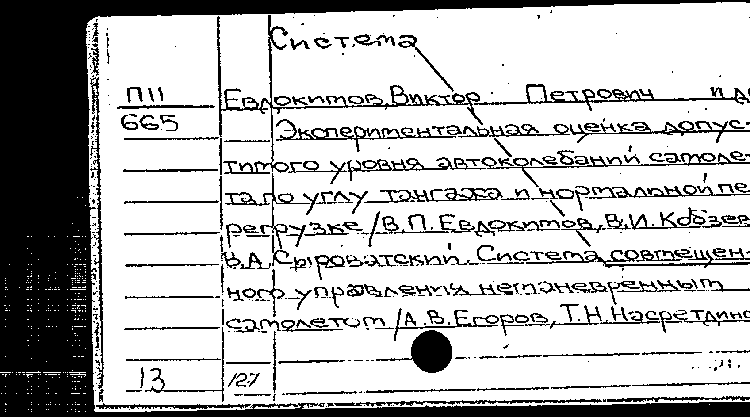 Система
П11 Евдокимов, Виктор Петрович и др
665 Экспериментальная оценка допус-
тимого уровня автоколебаний самоле-
та по углу тангажа и нормальной пе-
регрузке /В.П. Евдокимов, В.И. Кобзев
В.А. Сыроватский. Система совмещен-
ного управления неманевренным
самолетом /А.В. Егоров, Т.Н. Насретдино
13 127